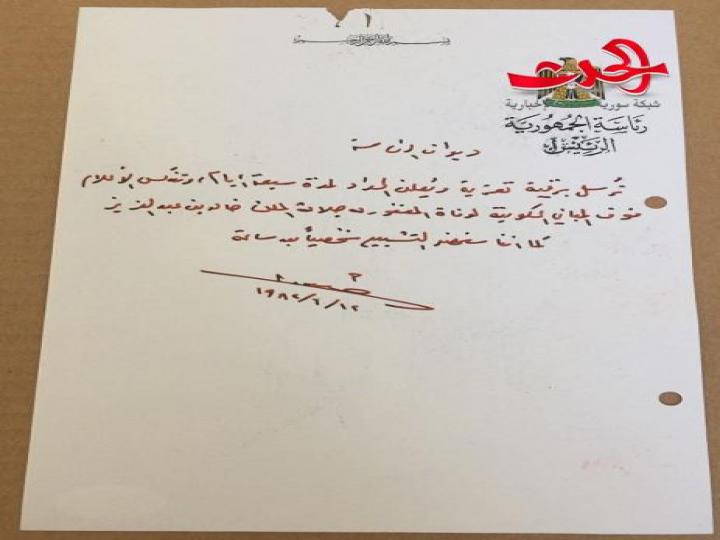 ١
بسم الله الرحمن الرحيم
الحدث
شبكة سورية إخبارية
رئاسة الجمهورية
الرئيس
ديوان الرئاسة
تُرسل برقية تعزية ويُعلن الحداد لمدة سبعة أيام، وتُنكّس الأعلام
فوق المباني الحكومية لوفاة المغفور له جلالة الملك خالد بن عبد العزيز
كما أننا سنحضر التشييع شخصياً بعد ساعة
١٩٨٢/٦/١٢